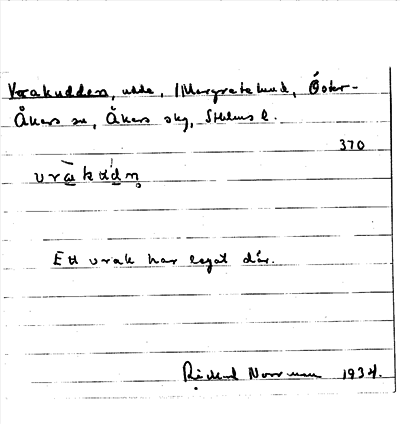 Vrakudden, udde, Margretelund, Öster-
Åkers sn, Åkers skg, Sthlms l.
370
vrakud̥n̥
Ett vrak har legat där.
Rickard Norrman 1934.